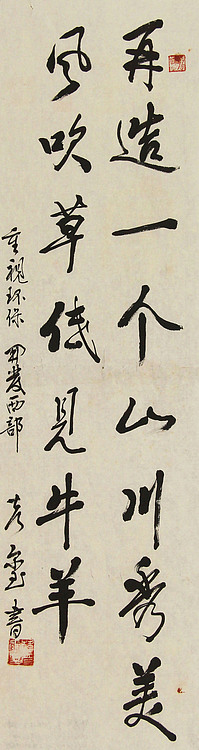 再造一个山川秀美
风吹草低见牛羊
重视环保 开发西部
书